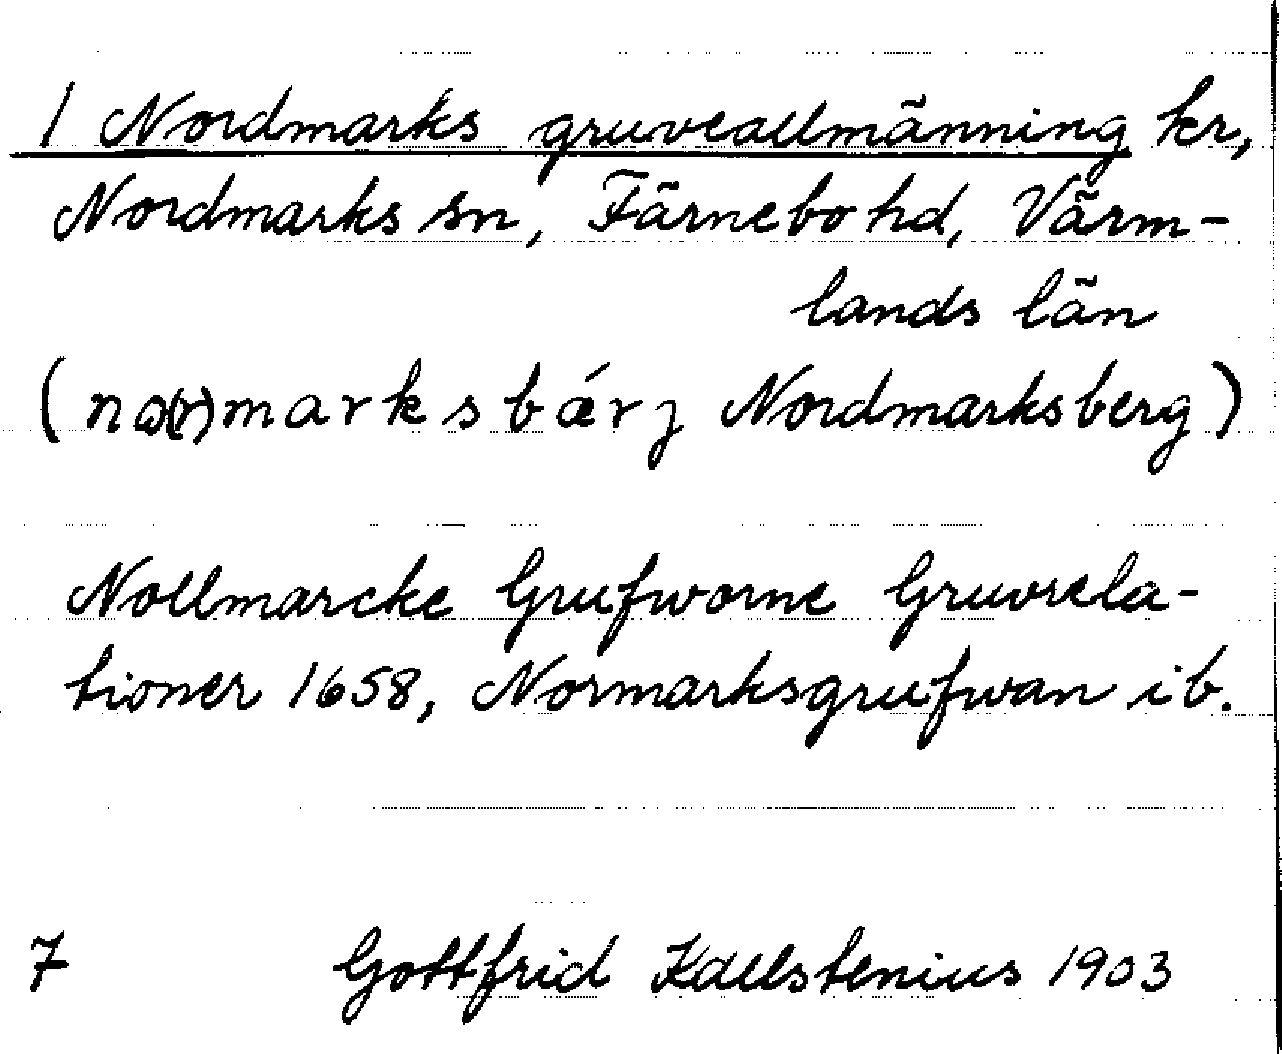 1 Nordmarks gruveallmänning kr,
Nordmarks sn, Färnebo hd, Värm-
lands län
(nω(r)marksbǽrj Nordmarksberg)
Nollmarcke Grufworne Gruvrela-
tioner 1658, Normarksgrufwan ib.
7 Gottfrid Kallstenius 1903